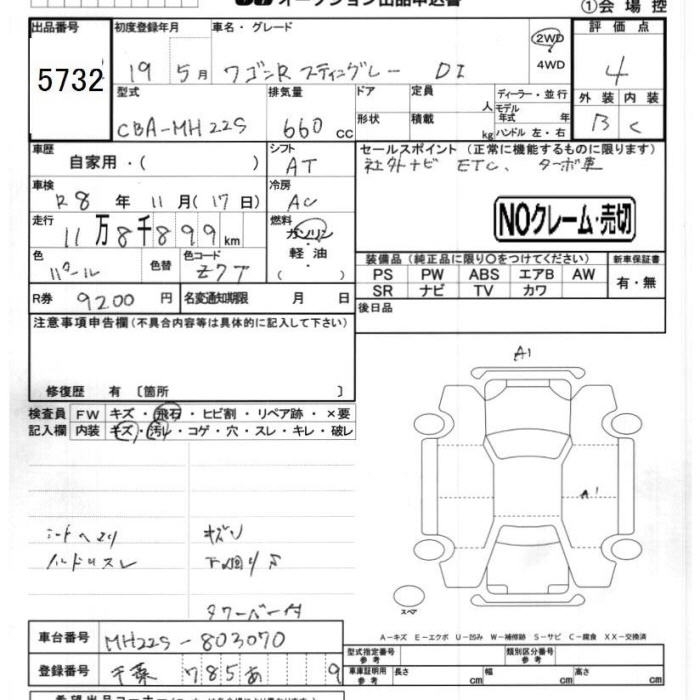 オークション出品申込書
①会場控
出品番号 5732
初度登録年月 19 5月
車名・グレード ワゴンR スティングレー DI
2WD
4WD
評価点 4
外装 内装
B C
型式 CBA-MH22S
排気量 660 cc
ドア
形状
定員 人
積載 kg
ディーラー・並行
モデル年式 年
ハンドル 左・右
車歴 自家用・( )
シフト AT
セールスポイント(正常に機能するものに限ります)
社外ナビ ETC、ターボ車
車検 R8 年 11 月(17 日)
冷房 AC
NOクレーム・売切
走行 11万8千899km
燃料 ガソリン
軽油
( ・ )
色 パール
色替
色コード Z7T
装備品(純正品に限り○をつけてください)
新車保証書
PS PW ABS エアB AW
SR ナビ TV カワ
有・無
R券 9200 円
名変通知期限 月 日
後日品
注意事項申告欄(不具合内容等は具体的に記入して下さい)
修復歴 有〔箇所 〕
検査員記入欄
FW キズ・飛石・ヒビ割・リペア跡・×要
内装 キズ・汚れ・コゲ・穴・スレ・キレ・破レ
A1
A1
シートヘタリ
ハンドルスレ
キズ
下回りS
タワーバー付
スペア
A-キズ E-エクボ U-凹み W-補修跡 S-サビ C-腐食 XX-交換済
車台番号 MH22S-803070
登録番号 千葉 785 あ 9
型式指定番号 参考
類別区分番号 参考
車庫証明用 参考 長さ cm 幅 cm 高さ cm